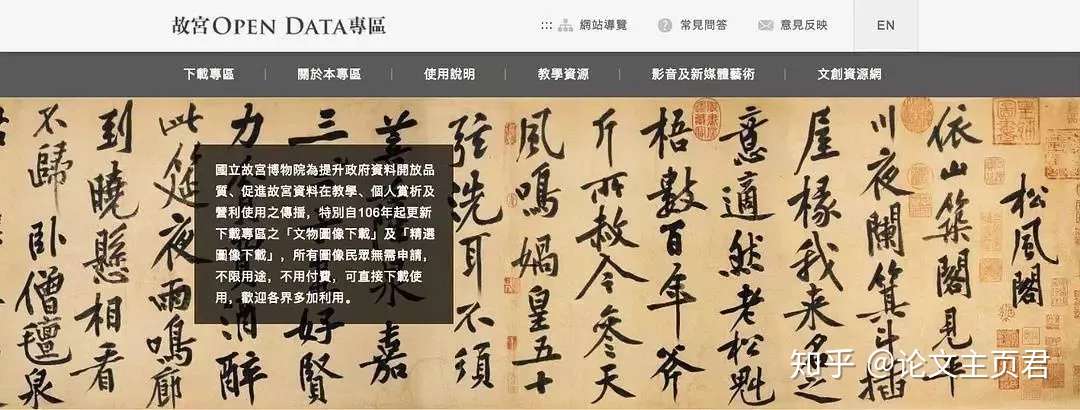 故宮OPEN DATA專區
網站導覽
常見問答
意見反映
EN
下載專區 | 關於本專區 | 使用說明 | 教學資源 | 影音及新媒體藝術 | 文創資源網
松風閣
依山築閣見平
川夜闌箕斗插
屋椽我来名之
意適然老松魁
梧數百年斧
斤所赦今參天
風鳴媧皇五十
弦洗耳不須
菩泉嘉
三好賢
力酒醉
此筵夜雨鳴廊
到曉懸相看
不歸卧僧氈泉
國立故宮博物院為提升政府資料開放品
質、促進故宮資料在教學、個人賞析及
營利使用之傳播，特別自106年起更新
下載專區之「文物圖像下載」及「精選
圖像下載」，所有圖像民眾無需申請，
不限用途，不用付費，可直接下載使
用，歡迎各界多加利用。
知乎 @论文主页君